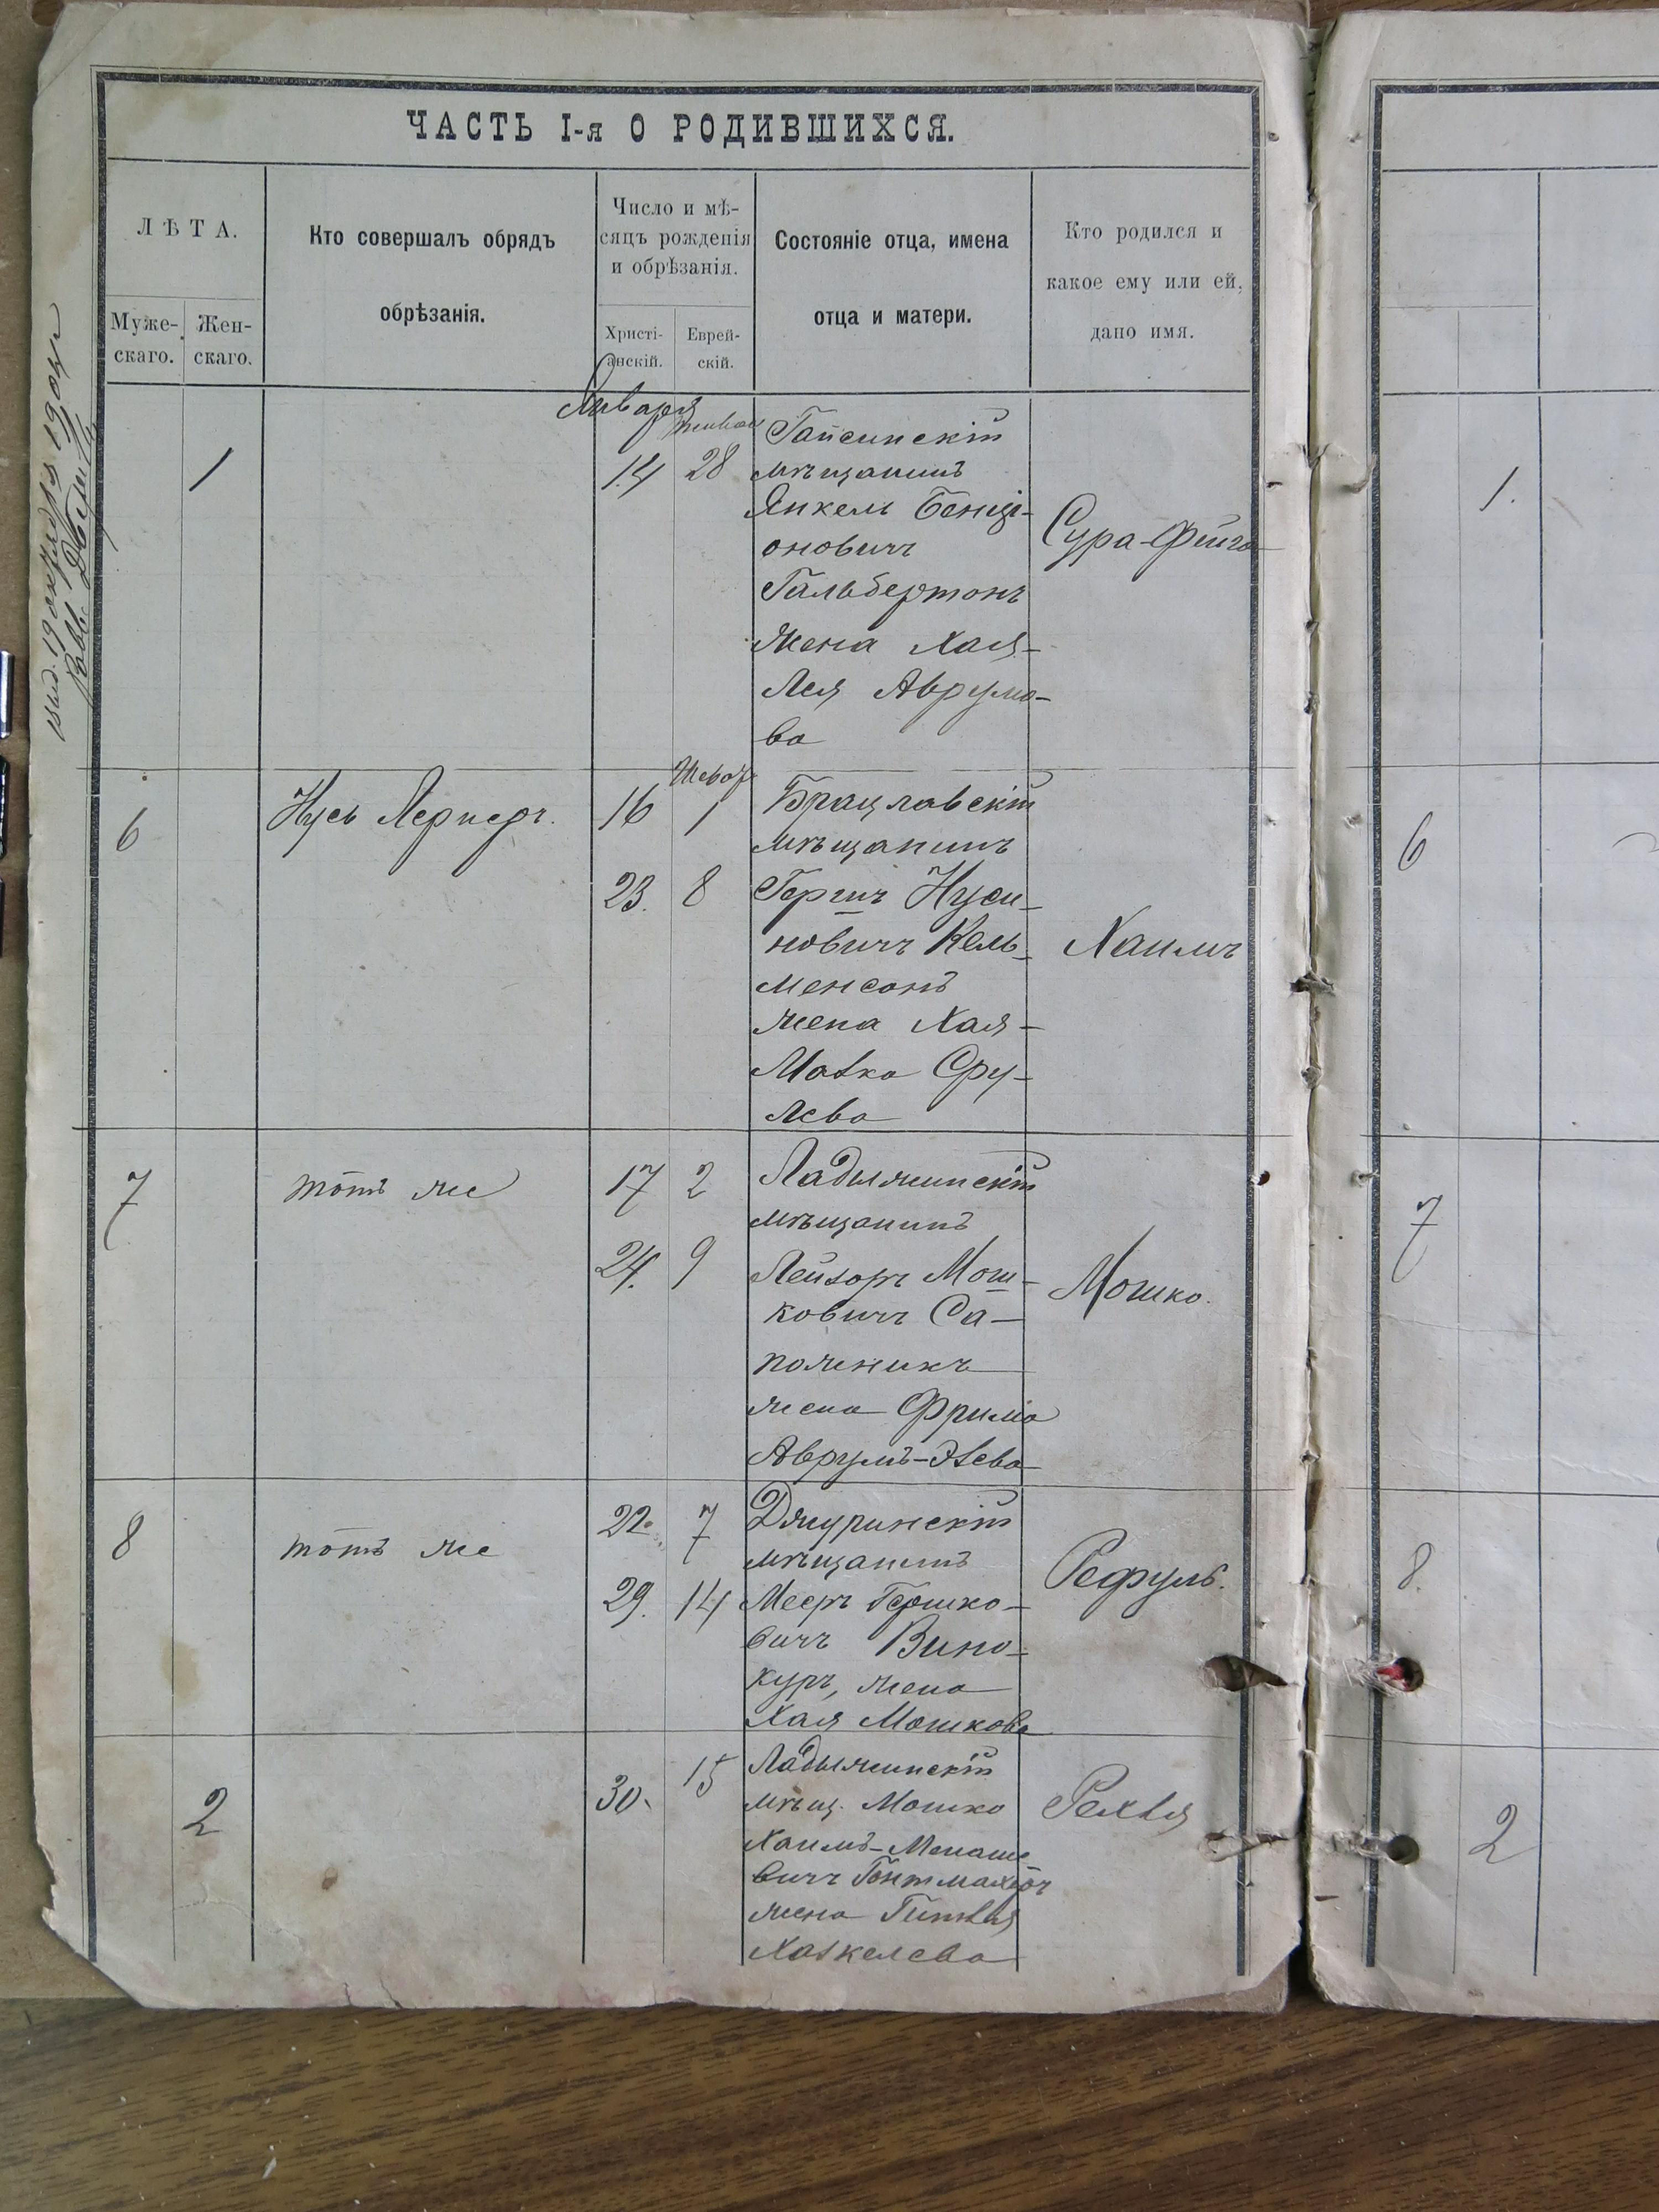 ЧАСТЬ I-я О РОДИВШИХСЯ.
ЛѢТА.
Муже-
скаго.
Жен-
скаго.
Кто совершалъ обрядъ
обрѣзанія.
Число и мѣ-
сяцъ рожденія
и обрѣзанія.
Христі-
анскій.
Еврей-
скій.
Состояніе отца, имена
отца и матери.
Кто родился и
какое ему или ей,
дано имя.
Января
1
14
28
Гайсинскій
мѣщанинъ
Янкель Бенці-
оновичъ
Гальбертонъ
жена Хая-
Лея Аврумо-
ва
Сура-Фейга
6
Нусь Лернеръ.
Шевотъ
16
1
23.
8
Брацлавскій
мѣщанинъ
Гершъ Нуси-
новичъ Кель-
менсонъ
жена Хая-
Матка Сру-
лева
Хаимъ
7
тотъ же
17
2
24.
9
Ладыжинскій
мѣщанинъ
Лейзоръ Мош-
ковичъ Са-
пожникъ
жена Фрима
Аврумъ-
Мошко.
8
тотъ же
22.
7
29.
14
Джуринскій
мѣщанинъ
Мееръ Гершко-
вичъ Вино-
куръ, жена
Хая Мошкова
Рефуль.
2
30.
15
Ладыжинскій
мѣщ. Мошко
Хаимъ-Менаше
вичъ Гентмахеръ
жена Гитля
Хаскелева
Рехля
1.
6
7
8.
2